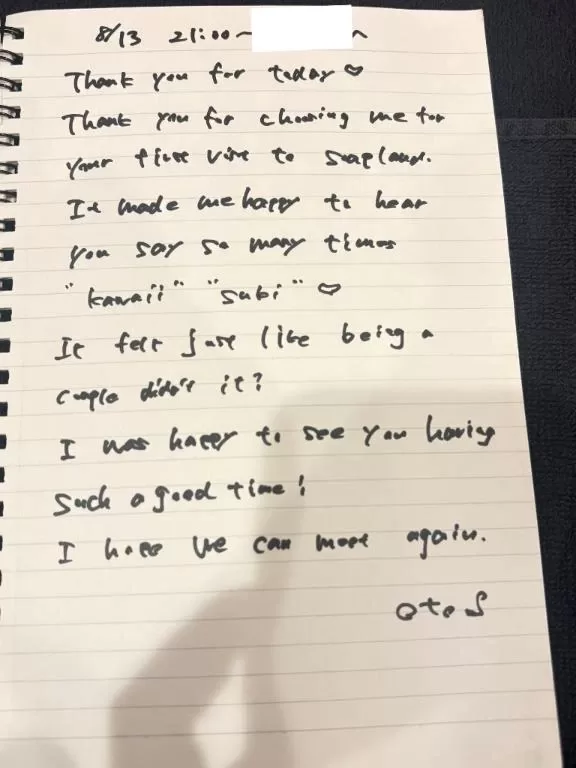 8/13 21:00~ ~
Thank you for today♡
Thank you for choosing me for
your first visit to soapland.
It made me happy to hear
you say so many times
"kawaii" "suki" ♡
It felt just like being a
couple didn't it?
I was happy to see you having
such a good time!
I hope we can meet again.